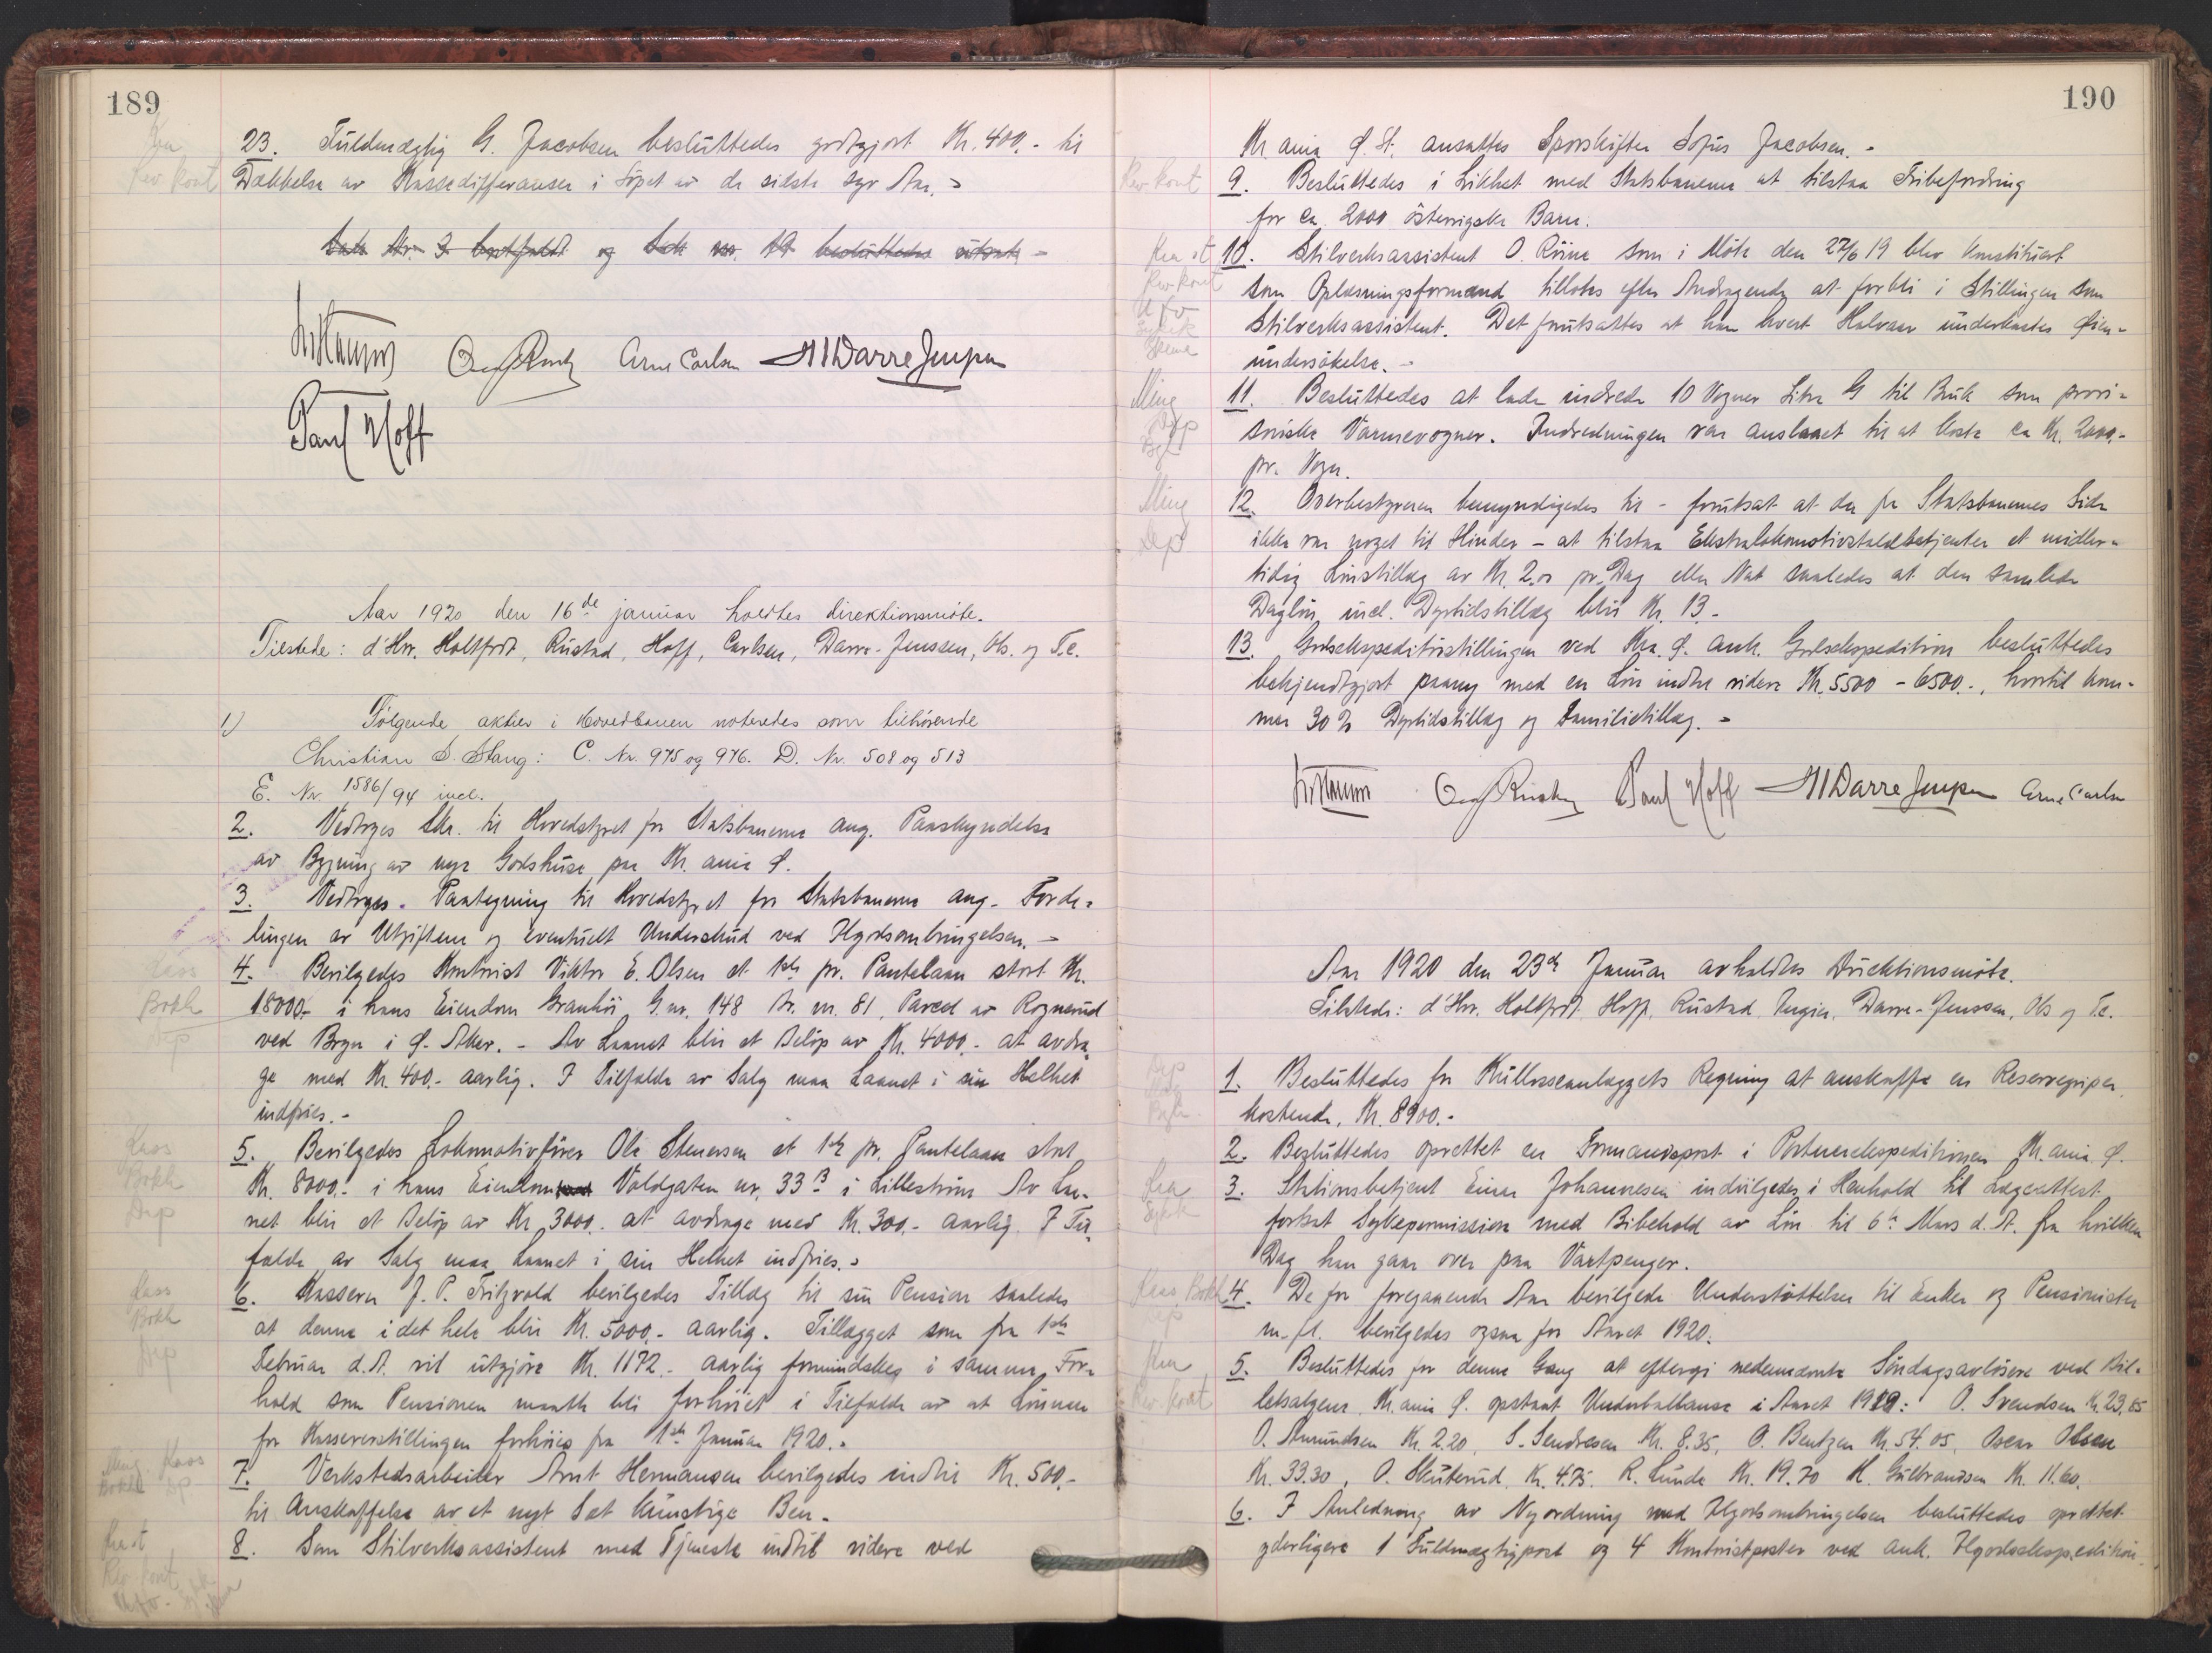 189
23. Fuldmægtig G. Jacobsen besluttedes godtgjort Kr. 400.- til
Dækkelse av Kassedifferanser i Löpet av de sidste syv Aar.-
Sak Nr. 3 bortfaldt og Sak nr. 19 besluttedes utsat -
Arne Carlsen HDarreJenssen
Paul Hoff
Aar 1920 den 16de januar holdtes direktionsmöte.
Tilstede: d'Hrr. Holtfodt, Rustad, Hoff, Carlsen, Darre-Jenssen, Ob. og T.c.
1) Følgende aktier i Hovedbanen noteredes som tilhörende
Christian S. Stang: C. Nr. 975 og 976. D. Nr. 508 og 513
E. Nr 1586/94 incl.
2. Vedtoges Skr. til Hovedstyret for Statsbanerne ang. Paaskyndelse
av Bygning av nye Godshuse paa Kr.ania Ø.
3. Vedtoges Paategning til Hovedstyret for Statsbanerne ang. Forde-
lingen av Utgiftene og eventuelt Underskud ved Ilgodsombringelsen.-
4. Bevilgedes Kontorist Viktor E. Olsen et 1ste pr. Pantelaan stort Kr.
18000.- i hans Eiendom Granhöi G.nr. 148 Br. nr. 81, Parcel av Rognerud
ved Bryn i Ø. Aker. - Av Laanet blir et Belöp av Kr. 4000.- at avdra-
ge med Kr. 400.- aarlig. I Tilfælde av Salg maa Laanet i sin Helhet
indfries.-
5. Bevilgedes Lokomotivförer Ole Stenersen et 1ste pr. Pantelaan stort
Kr. 8000.- i hans Eiendom Voldgaten nr. 33 B i Lilleström Av Laa-
net blir et Belöp av Kr 3000. at avdrage med Kr. 300.- aarlig. I Til-
fælde av Salg maa Laanet i sin Helhet indfries.-
6. Kasserer J. P. Fritzvold bevilgedes Tillæg til sin Pension saaledes
at denne i det hele blir Kr. 5000.- aarlig. Tillægget som fra 1ste
Februar d.A. vil utgjöre Kr. 1172.- aarlig formindskes i samme For-
hold som Pensionen maatte bli forhöiet i Tilfælde av at Lönnen
for Kassererstillingen forhöies fra 1ste Januar 1920.-
7. Verkstedsarbeider Arnt Hermansen bevilgedes indtil Kr. 500.-
til Anskaffelse av et nyt Sæt kunstige Ben.-
8. Som Stilverksassistent med Tjeneste indtil videre ved
190
Kr.ania Ø. St. ansattes Sporskifter Sofus Jacobsen.-
9. Besluttedes i Likhet med Statsbanerne at tilstaa Fribefordring
for ca. 2000 österrigske Barn.
10. Stilverksassistent O. Röine som i Möte den 27/6 19 blev konstitueret
som Oplæsningsformand tillotes efter Andragende at forbli i Stillingen som
Stilverksassistent. Det forutsættes at han hvert Halvaar underkastes Øien-
undersökelse.-
11. Besluttedes at lade indrede 10 Vogner Litra G til Bruk som provi-
soriske Varmevogner. Indredningen var anslaaet til at koste ca Kr. 2000.-
pr. Vogn.
12. Overbestyreren bemyndigedes til - forutsat at der fra Statsbanernes Side
ikke var noget til Hinder - at tilstaa Ekstralokomotivstaldbetjenter et midler-
tidig Lönstillæg av Kr. 2.00 pr. Dag eller Nat saaledes at den samlede
Daglön incl. Dyrtidstillæg blir Kr. 13.-
13. Godsekspeditörstillingen ved Kra. Ø. ank. Godsekspedition besluttedes
bekjendtgjort paany med en Lön indtil videre Kr. 5500 - 6500.-, hvortil kom-
mer 30 % Dyrtidstillæg og Familietillæg.-
Paul Hoff HDarreJenssen Arne Carlsen
Aar 1920 den 23de Januar avholdtes Direktionsmöte.
Tilstede: d'Hrr. Holtfodt, Hoff, Rustad, Darre-Jenssen, Ob og T.c.
1. Besluttedes for Kullosseanlæggets Regning at anskaffe en Reservegriper
kostende, Kr. 8900.-
2. Besluttedes oprettet en Formandspost i Portnerekspeditionen Kr.ania Ø.
3. Stationsbetjent Einar Johannesen indvilgedes i Henhold til Lægeattest
fortsat Sykepermission med Bibehold av Lön til 6te Mars d.A. fra hvilken
Dag han gaar over paa Vartpenger.
4. De for foregaaende Aar bevilgede Understöttelser til Enker og Pensionister
m.fl. bevilgedes ogsaa for Aaret 1920.
5. Besluttedes for denne Gang at eftergi nedennævnte Söndagsavlösere ved Bil-
letsalgene Kr.ania Ø. opstaat Underballanse i Aaret 1919: O. Svendsen Kr. 23,85
O. Amundsen Kr. 2.20, S. Sendresen Kr. 8.35, O. Bentzen Kr. 54.05, Oscar Olsen
Kr. 33.30, O. Skuterud Kr. 4.75. R. Lunde Kr. 19.70 H. Gulbrandsen Kr. 11.60.
6. I Anledning av Nyordning med Ilgodsombringelsen besluttedes oprettet
yderligere 1 Fuldmægtigpost og 4 Kontoristposter ved ank. Ilgodsekspedition